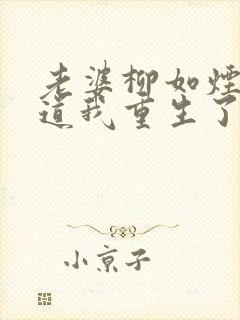 老婆柳如煙
道我重生了
小京子